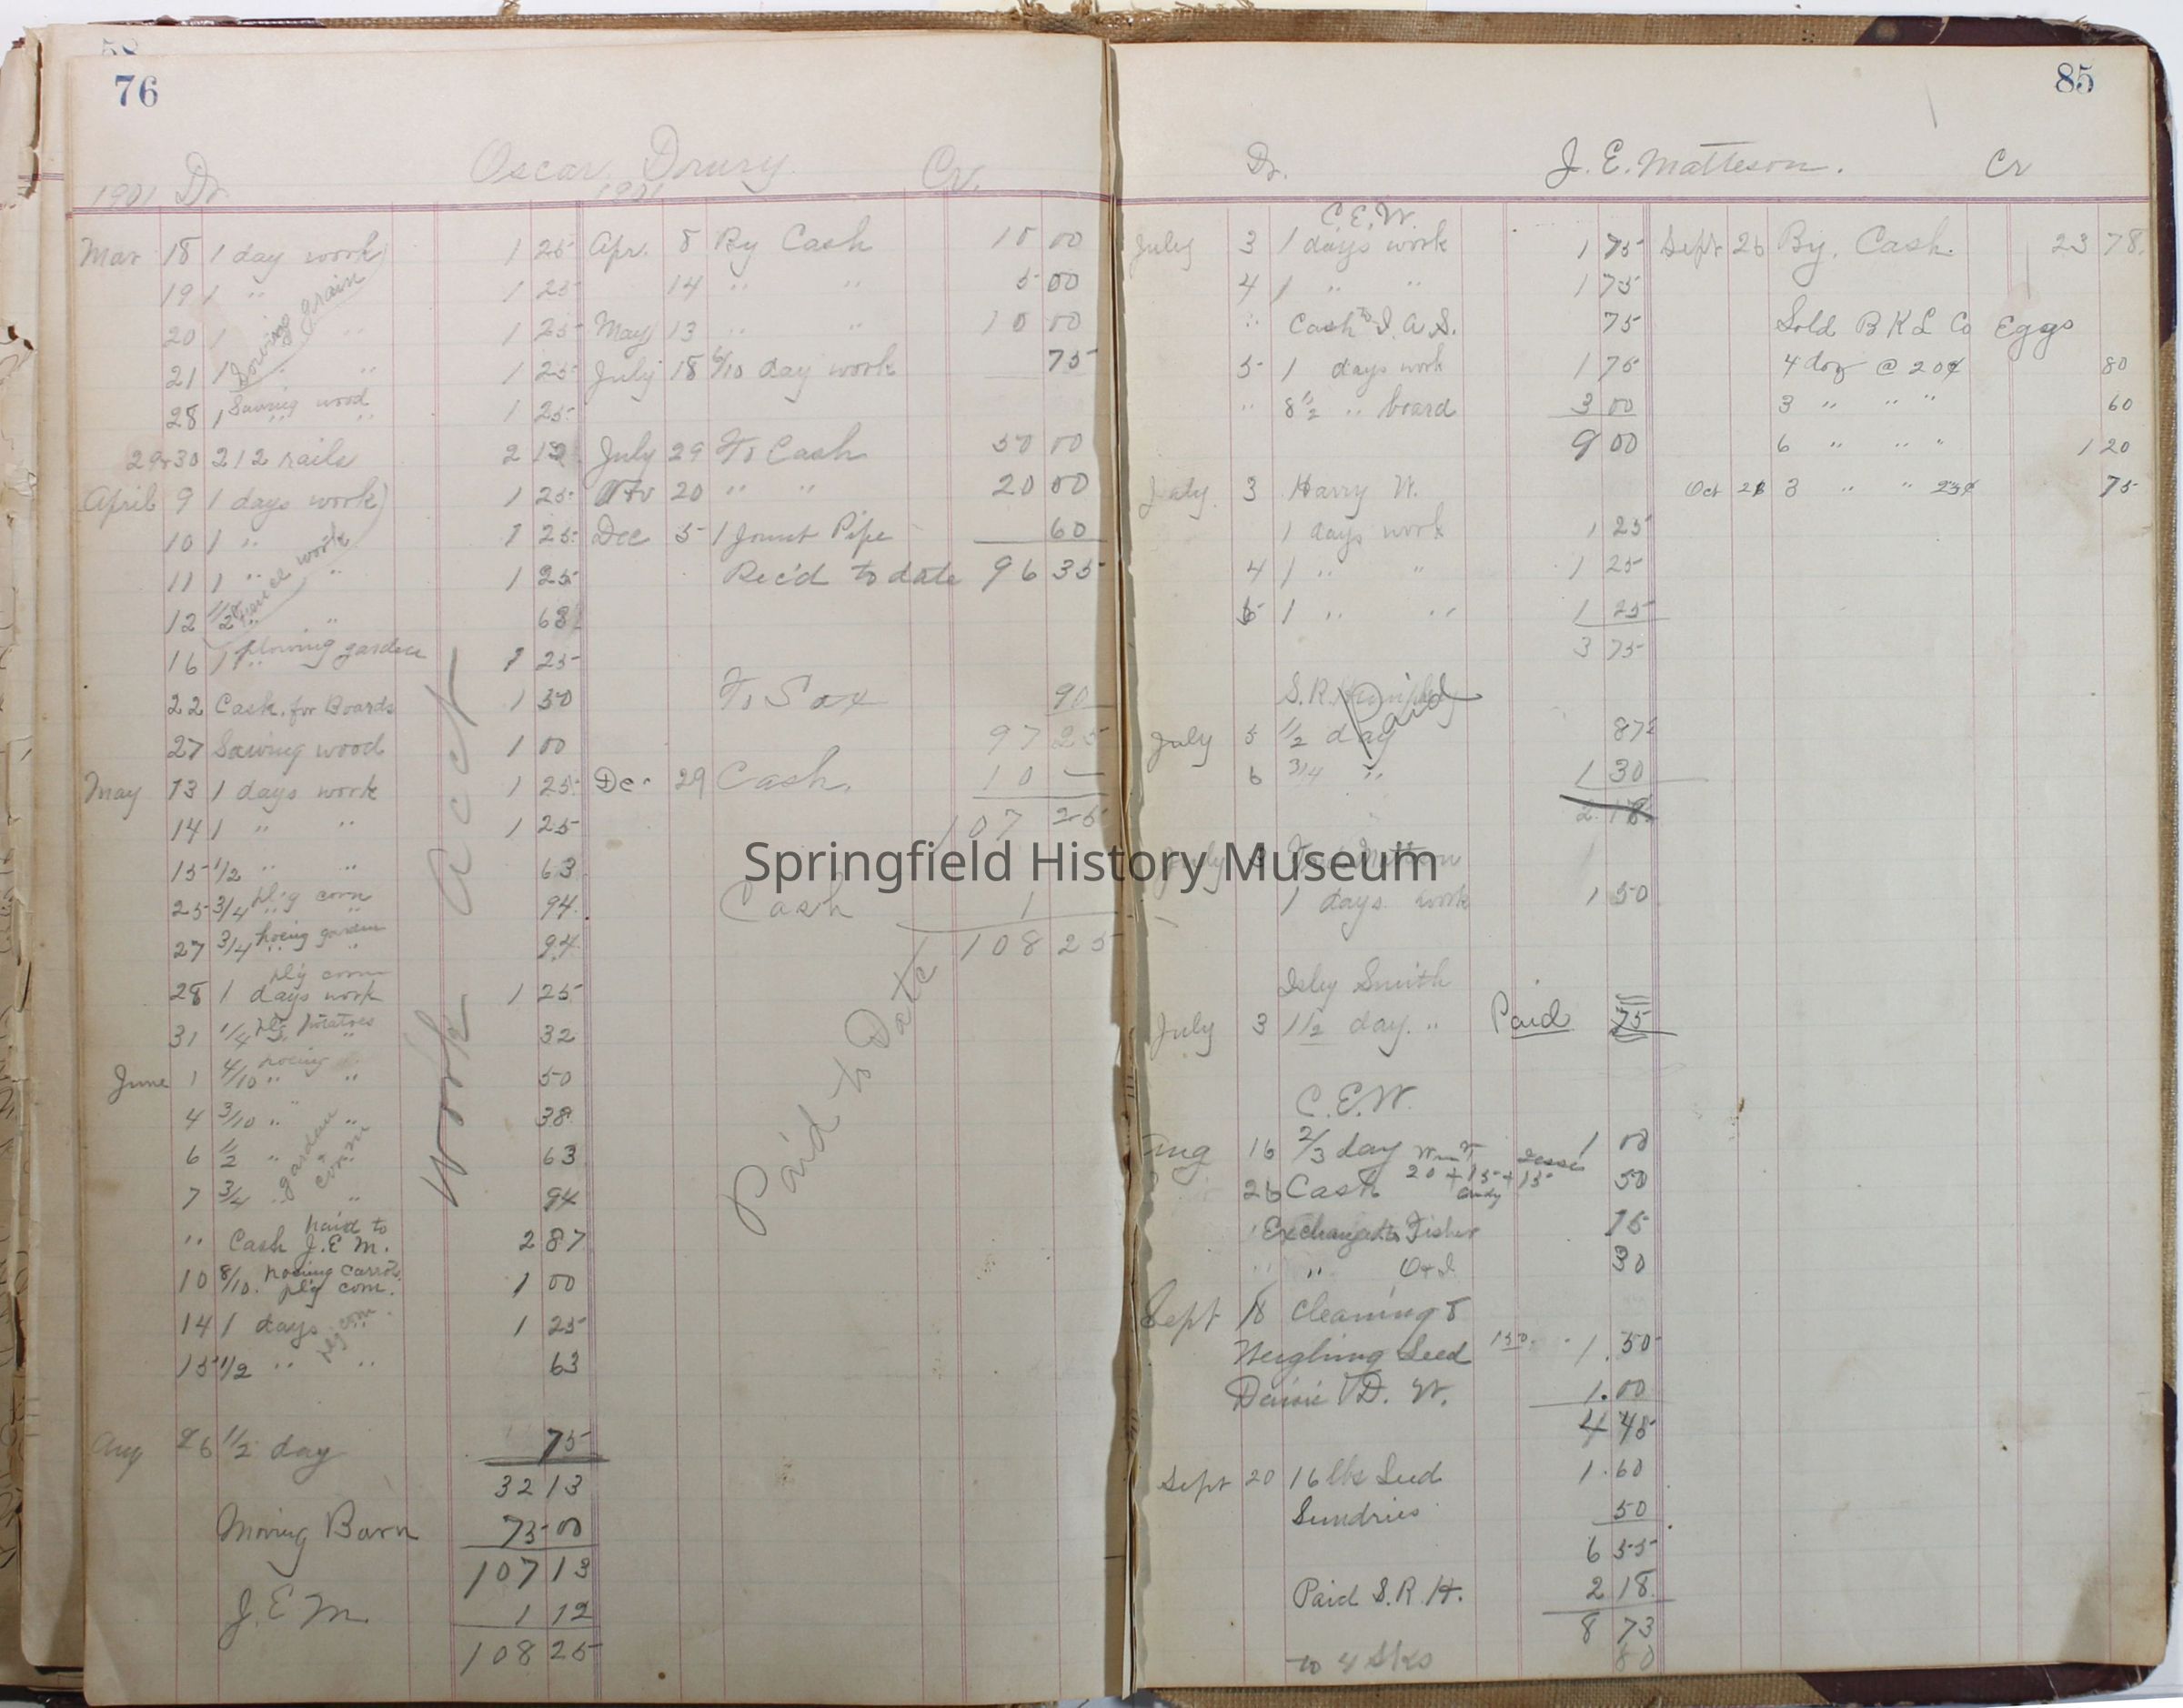 76
Oscar Drury
1901 Dr. 1901 Cr.
Mar 18 1 day work 1 25
19 1 " 1 25
Sowing grain
20 1 " 1 25
21 1 " 1 25
Sawing wood
28 1 " " 1 25
29+30 212 rails 2 12
April 9 1 days work 1 25
10 1 " 1 25
11 1 " " 1 25
work
12 1/2 " " 63
16 1 plowing garden 1 25
22 Cash for Boards 1 50
27 Sawing wood 1 00
May 13 1 days work 1 25
14 1 " " 1 25
15 1/2 " " 63
25 3/4 pl'g corn 94
27 3/4 hoeing garden 94
pl'g corn
28 1 days work 1 25
31 1/4 potatoes 32
June 1 4/10 hoeing " 50
4 3/10 " " 38
6 1/2 " 63
garden corn
7 3/4 " " 94
paid to
" Cash J. E M. 2 87
10 8/10 hoeing carrots pl'g corn. 1 00
14 1 days " 1 25
pl'g corn
15 1/2 " " 63
Aug 26 1/2 day 75
32 13
Moving Barn 75 00
107 13
J. E M. 1 12
108 25
Work acct
Apr. 8 By Cash 10 00
14 " " 5 00
May 13 " " 10 00
July 18 6/10 day work 75
July 29 To Cash 50 00
Nov 20 " " 20 00
Dec 5 1 Joint Pipe 60
Rec'd to date 96 35
To Sax 90
97 25
Dec 29 Cash. 10 —
107 25
Cash 1
108 25
Paid to Date
Springfield History Museum
85
Dr. J. E. Matteson. Cr
C. E. W.
July 3 1 days work 1 75
4 1 " " 1 75
" Cash to I. A. S. 75
5 1 days work 1 75
" 8 1/2 " board 3 00
9 00
July 3 Harry W.
1 days work 1 25
4 1 " " 1 25
5 1 " " 1 25
3 75
S. R.
Paid
July 5 1/2 day 87
6 3/4 " 1 30
2 18
July 3 Matteson
1 days work 1 50
Isley Smith
July 3 1/2 day " Paid 75
C. E. W.
Aug 16 2/3 day 1 00
26 Cash 20 + 15 + 15 50
Candy
" Exchange to Fisher 15
" " 30
Sept 18 Cleaning &
Weighing Seed 150 1.50
D. W. 1.00
4 45
Sept 20 16 lbs Seed 1.60
Sundries 50
6 55
Paid S. R. H. 2 18
8 73
to 4 Sks 80
Sept 26 By. Cash. 23 78
Sold B K L Co Eggs
4 doz @ 20¢ 80
3 " " " 60
6 " " " 1 20
Oct 21 3 " " 25¢ 75